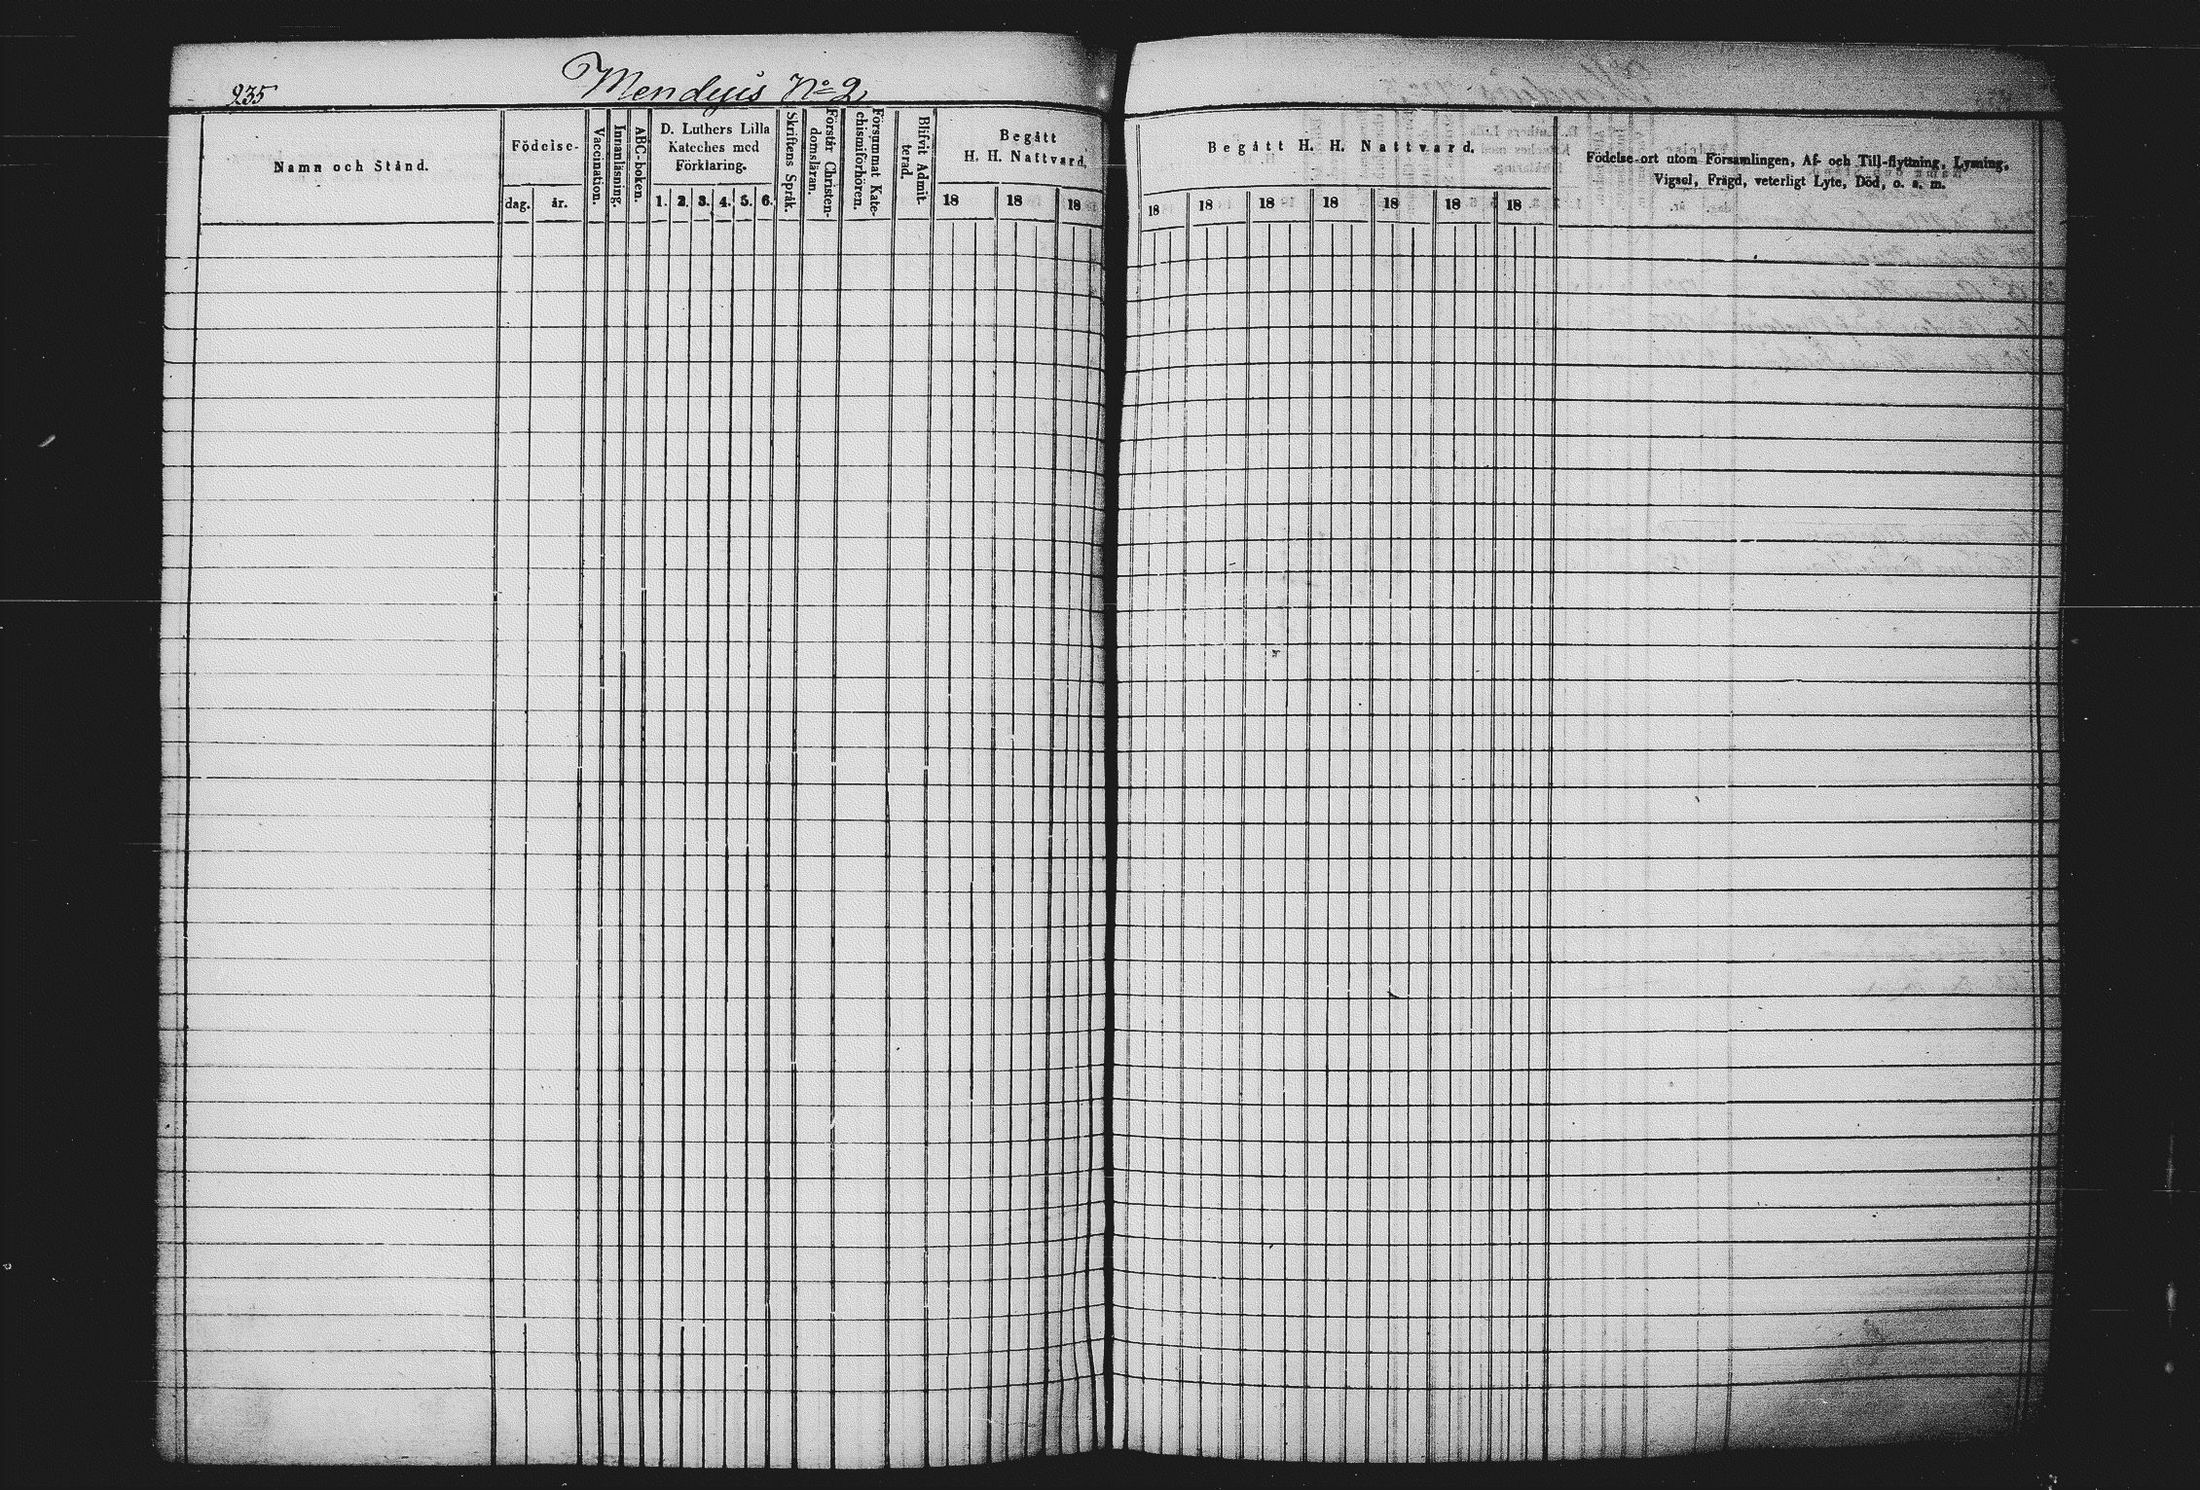 235
Mendyis No 2
Namn och Stånd.
Födelse-
dag.
år.
Vaccination.
Innanläsning.
ABC-boken.
D. Luthers Lilla
Kateches med
Förklaring.
1. 2. 3. 4. 5. 6.
Skriftens Språk.
Förstår Christen-
domsläran.
Försummat Kate-
chismiförhören.
Blifvit Admit-
terad.
Begått
H. H. Nattvard.
18 18 18
Begått H. H. Nattvard.
18 18 18 18 18 18 18
Födelse-ort utom Församlingen, Af- och Till-flyttning, Lysning,
Vigsel, Frägd, veterligt Lyte, Död, o. s. m.